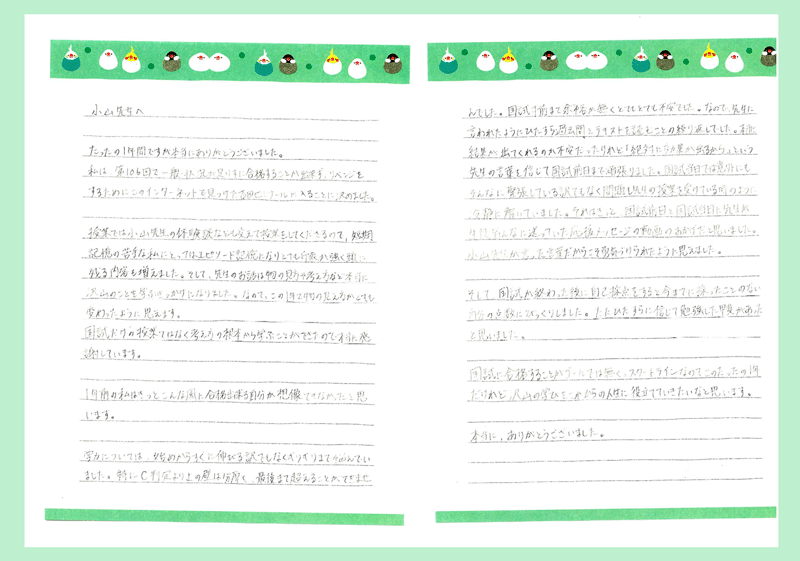 小山先生へ
たったの1年間ですが本当にありがとうございました。
私は、第106回で一般・状況が足りずに合格することが出来ず、リベンジを
するためにこのインターネットで見つけた ワールドに入ることに決めました。
授業では小山先生の体験談なども交えて授業をしてくださるので、短期
記憶の苦手な私にとってはエピソード記憶になりとても印象が強く頭に
残る内容も増えました。そして、先生のお話は物の見方や考え方など本当に
沢山のことを学ぶきっかけになりました。なので、この1年で物の見え方がとても
変わったように思えます。
国試だけの授業ではなく考え方の根本から学ぶことができたので本当に感
謝しています。
1年前の私はきっとこんな風に合格出来る自分が想像できなかったと思
います。
学力については、始めからすぐに伸びる訳でもなくギリギリまで悩んでい
ました。特にC判定より上の壁は分厚く、最後まで超えることができませ
んでした。国試寸前まで余裕が無くとてもとても不安でした。なので、先生に
言われたようにひたすら過去問とテキストを読むことの繰り返しでした。本当に
結果が出てくれるのか不安だったけれど「絶対に効果が出るから。」という
先生の言葉を信じて国試前日まで頑張りました。国試当日では意外にも
そんなに緊張している訳でもなく問題も先生の授業を受けている時のように
冷静に解いていました。それはきっと、国試前日と国試当日に先生が
生徒みんなに送っていた応援メッセージの動画のおかげだと思いました。
小山先生が言った言葉だからこそ勇気づけられたように思えました。
そして、国試が終わった後に自己採点をすると今までに採ったことのない
自分の点数にびっくりしました。ただひたすらに信じて勉強した甲斐があった
と思いました。
国試に合格することがゴールでは無く、スタートラインなのでこのたったの1年
だけれど、沢山の学びをこれからの人生に役立てていきたいなと思います。
本当に、ありがとうございました。